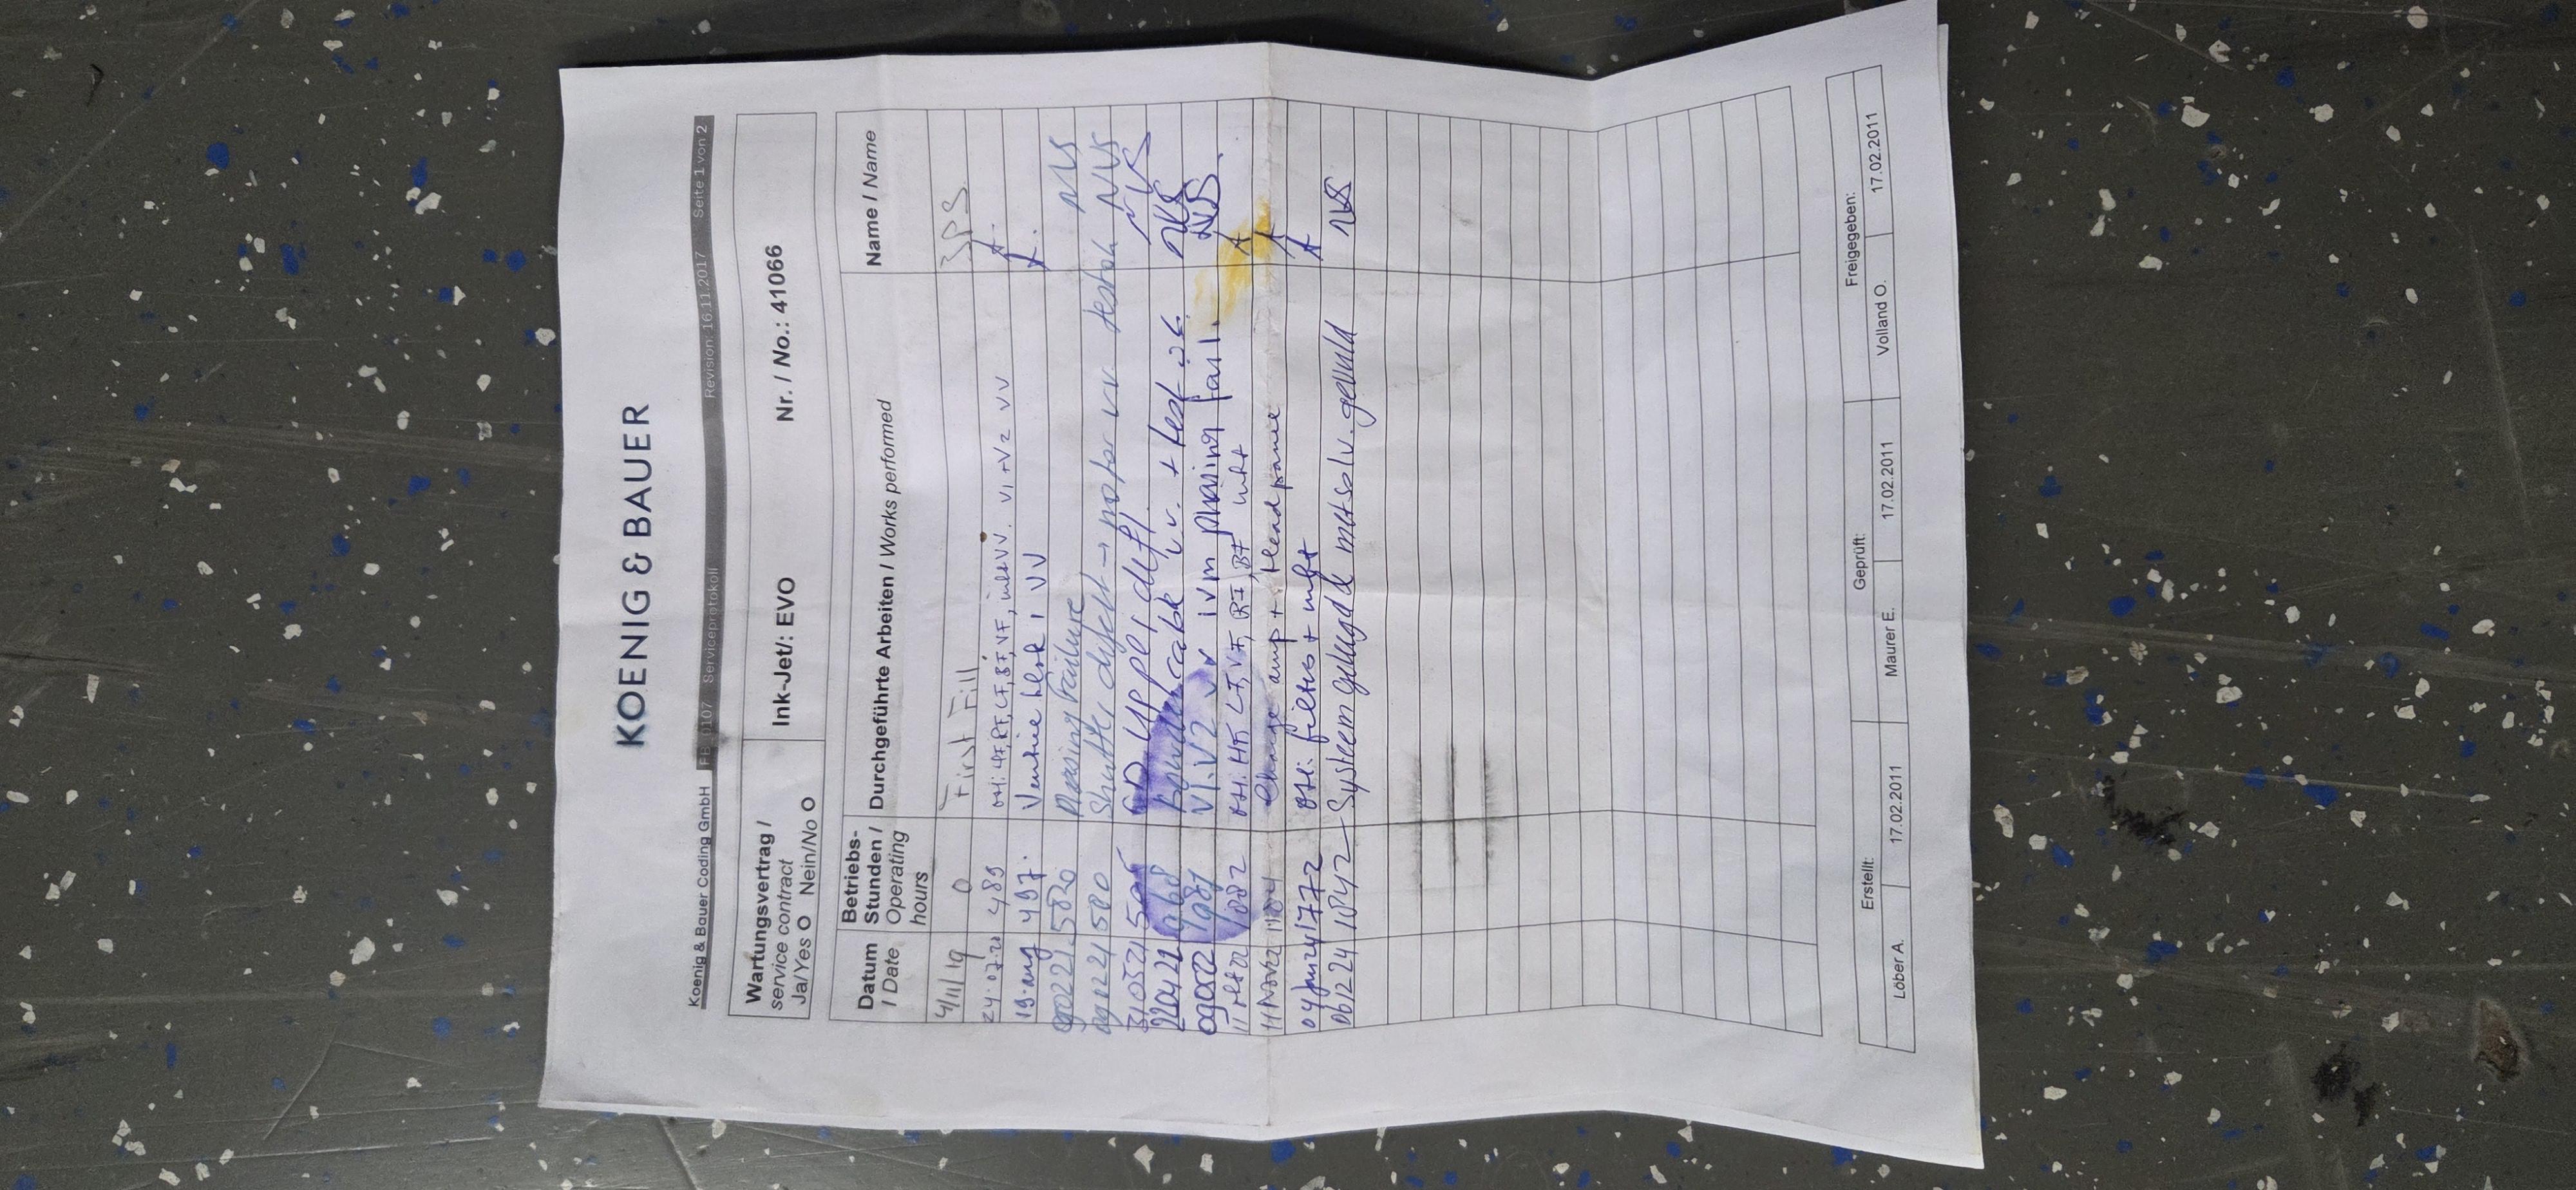 KOENIG & BAUER
Koenig & Bauer Coding GmbH FB 0107 Serviceprotokoll Revision: 16.11.2017 Seite 1 von 2
Wartungsvertrag /
service contract
Ja/Yes O Nein/No O
Ink-Jet/: EVO
Nr. / No.: 41066
Datum
/ Date
Betriebs-
Stunden /
Operating
hours
Durchgeführte Arbeiten / Works performed
Name / Name
4/11/19 0 First Fill JPS
24.07.20 489 V1+V2 VV
19.aug 497. 1 VV
5820 Phasing Failure NVS
580 Shutter defekt → motor vv NVS
310521 NVS
220421 968 cable v.v. + test NVS
090802 981 V1.V2 ivm phasing fail. NVS
882 HF, LF, VF, RF, BF inkt
11 Nov22 1184 Change amp + Head
04 juni24 1772 filters + inkt
061224 1842 Systeem met solv. gevuld NVS
Erstellt:
Geprüft:
Freigegeben:
Löber A. 17.02.2011 Maurer E. 17.02.2011 Volland O. 17.02.2011